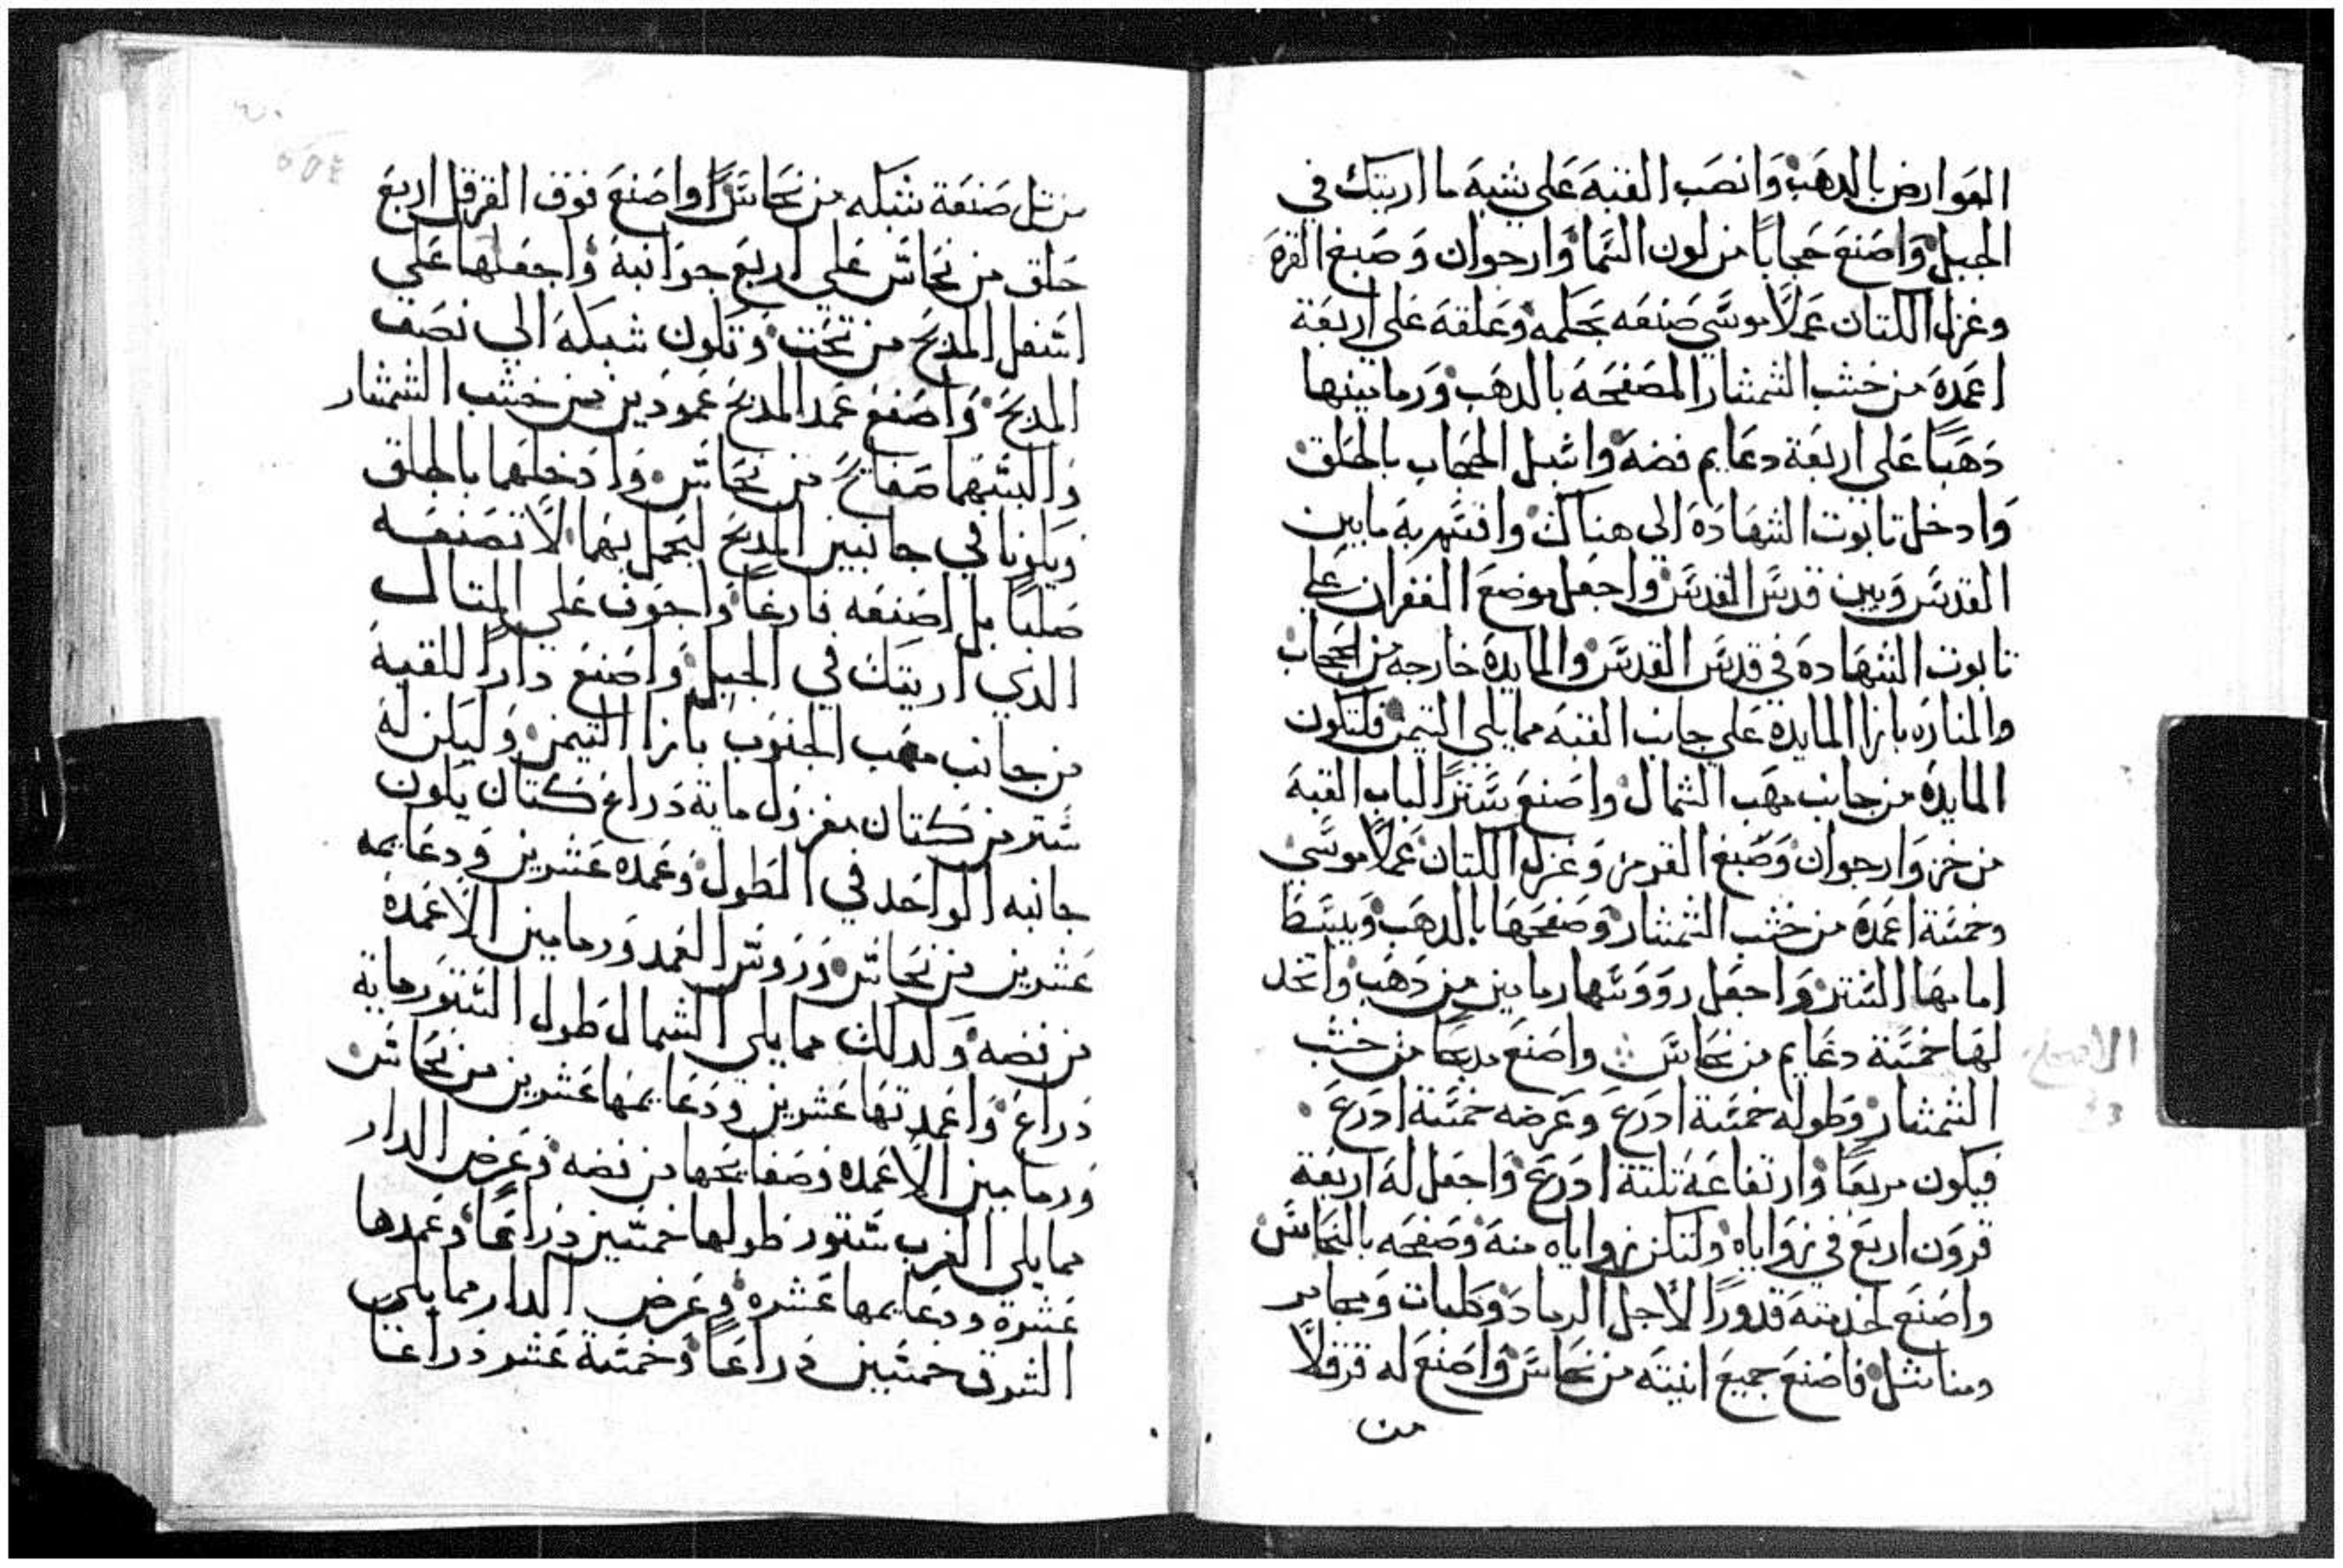 العوارض بالدهب وانصب القبه على شبه ما اريتك في
الجبل واصنع حجابا من لون السما وارجوان وصبغ القرمز
وغزل الكتان عملا موسي صنعه بحكمه وعلقه على اربعة
اعمده من خشب الشمشار المصفحه بالدهب ورمامينها
دهبا على اربعة دعايم فضه واسبل الحجاب بالحلق
وادخل تابوت الشهاده الى هناك وافتهر به مابين
القدس وبين قدس القدس واجعل موضع الغفران على
تابوت الشهاده في قدس القدس والمايده خارجه من الحجاب
والمناره بازا المايده على جانب القبه مما يلي التيمن فلتكون
المايده من جانب مهب الشمال واصنع سترا لباب القبه
من خز وارجوان وصبغ القرمز وغزل الكتان عملا موسي
وخمسة اعمده من خشب الشمشار وصفحها بالدهب ويبسط
امامها الستر واجعل رووسها رمامين من دهب واتخد
لها خمسة دعايم من نحاس واصنع مدبحا من خشب
الشمشار وطوله خمسة ادرع وعرضه خمسة ادرع
فيكون مربعا وارتفاعه تلتة ادرع واجعل له اربعة
قرون اربع في زواياه ولتكن زواياه منه وصفحه بالنحاس
واصنع لخدمته قدورا لاجل الرماد وطبات ومجامر
ومناشل فاصنع جميع انيته من نحاس واصنع له قرقلا
من
من تل صنعة شبكه من نحاس واصنع فوق القرقل اربع
حلق من نحاس على اربع جوانبه واجعلها على
اسفل المدبح من تحت وتكون شبكه الى نصف
المدبح واصنع عمد المدبح عمودين من خشب الشمشار
والبسهما صفايح من نحاس وادخلهما بالحلق
ويكونا في جانبين المدبح ليحمل بهما لا تصنعه
صلبا بل اصنعه فارغا واجوف على المتال
الدي اريتك في الجبل واصنع دارا للقبه
من جانب مهب الجنوب بازا التيمن وليكن له
ستر من كتان مغزول ماية دراع كتان يكون
جانبه الواحد في الطول وعمده عشرين ودعايمه
عشرين من نحاس وروس العمد ورمامين الاعمده
من فضه وكدلك مما يلي الشمال طول الستور ماية
دراع واعمدتها عشرين ودعايمها عشرين من نحاس
ورمامين الاعمده وصفايحها من فضه وعرض الدار
مما يلي الغرب ستور طولها خمسين دراعا وعمدها
عشرة ودعايمها عشره وعرض الدار مما يلي
الشرق خمسين دراعا وخمسة عشر دراعا